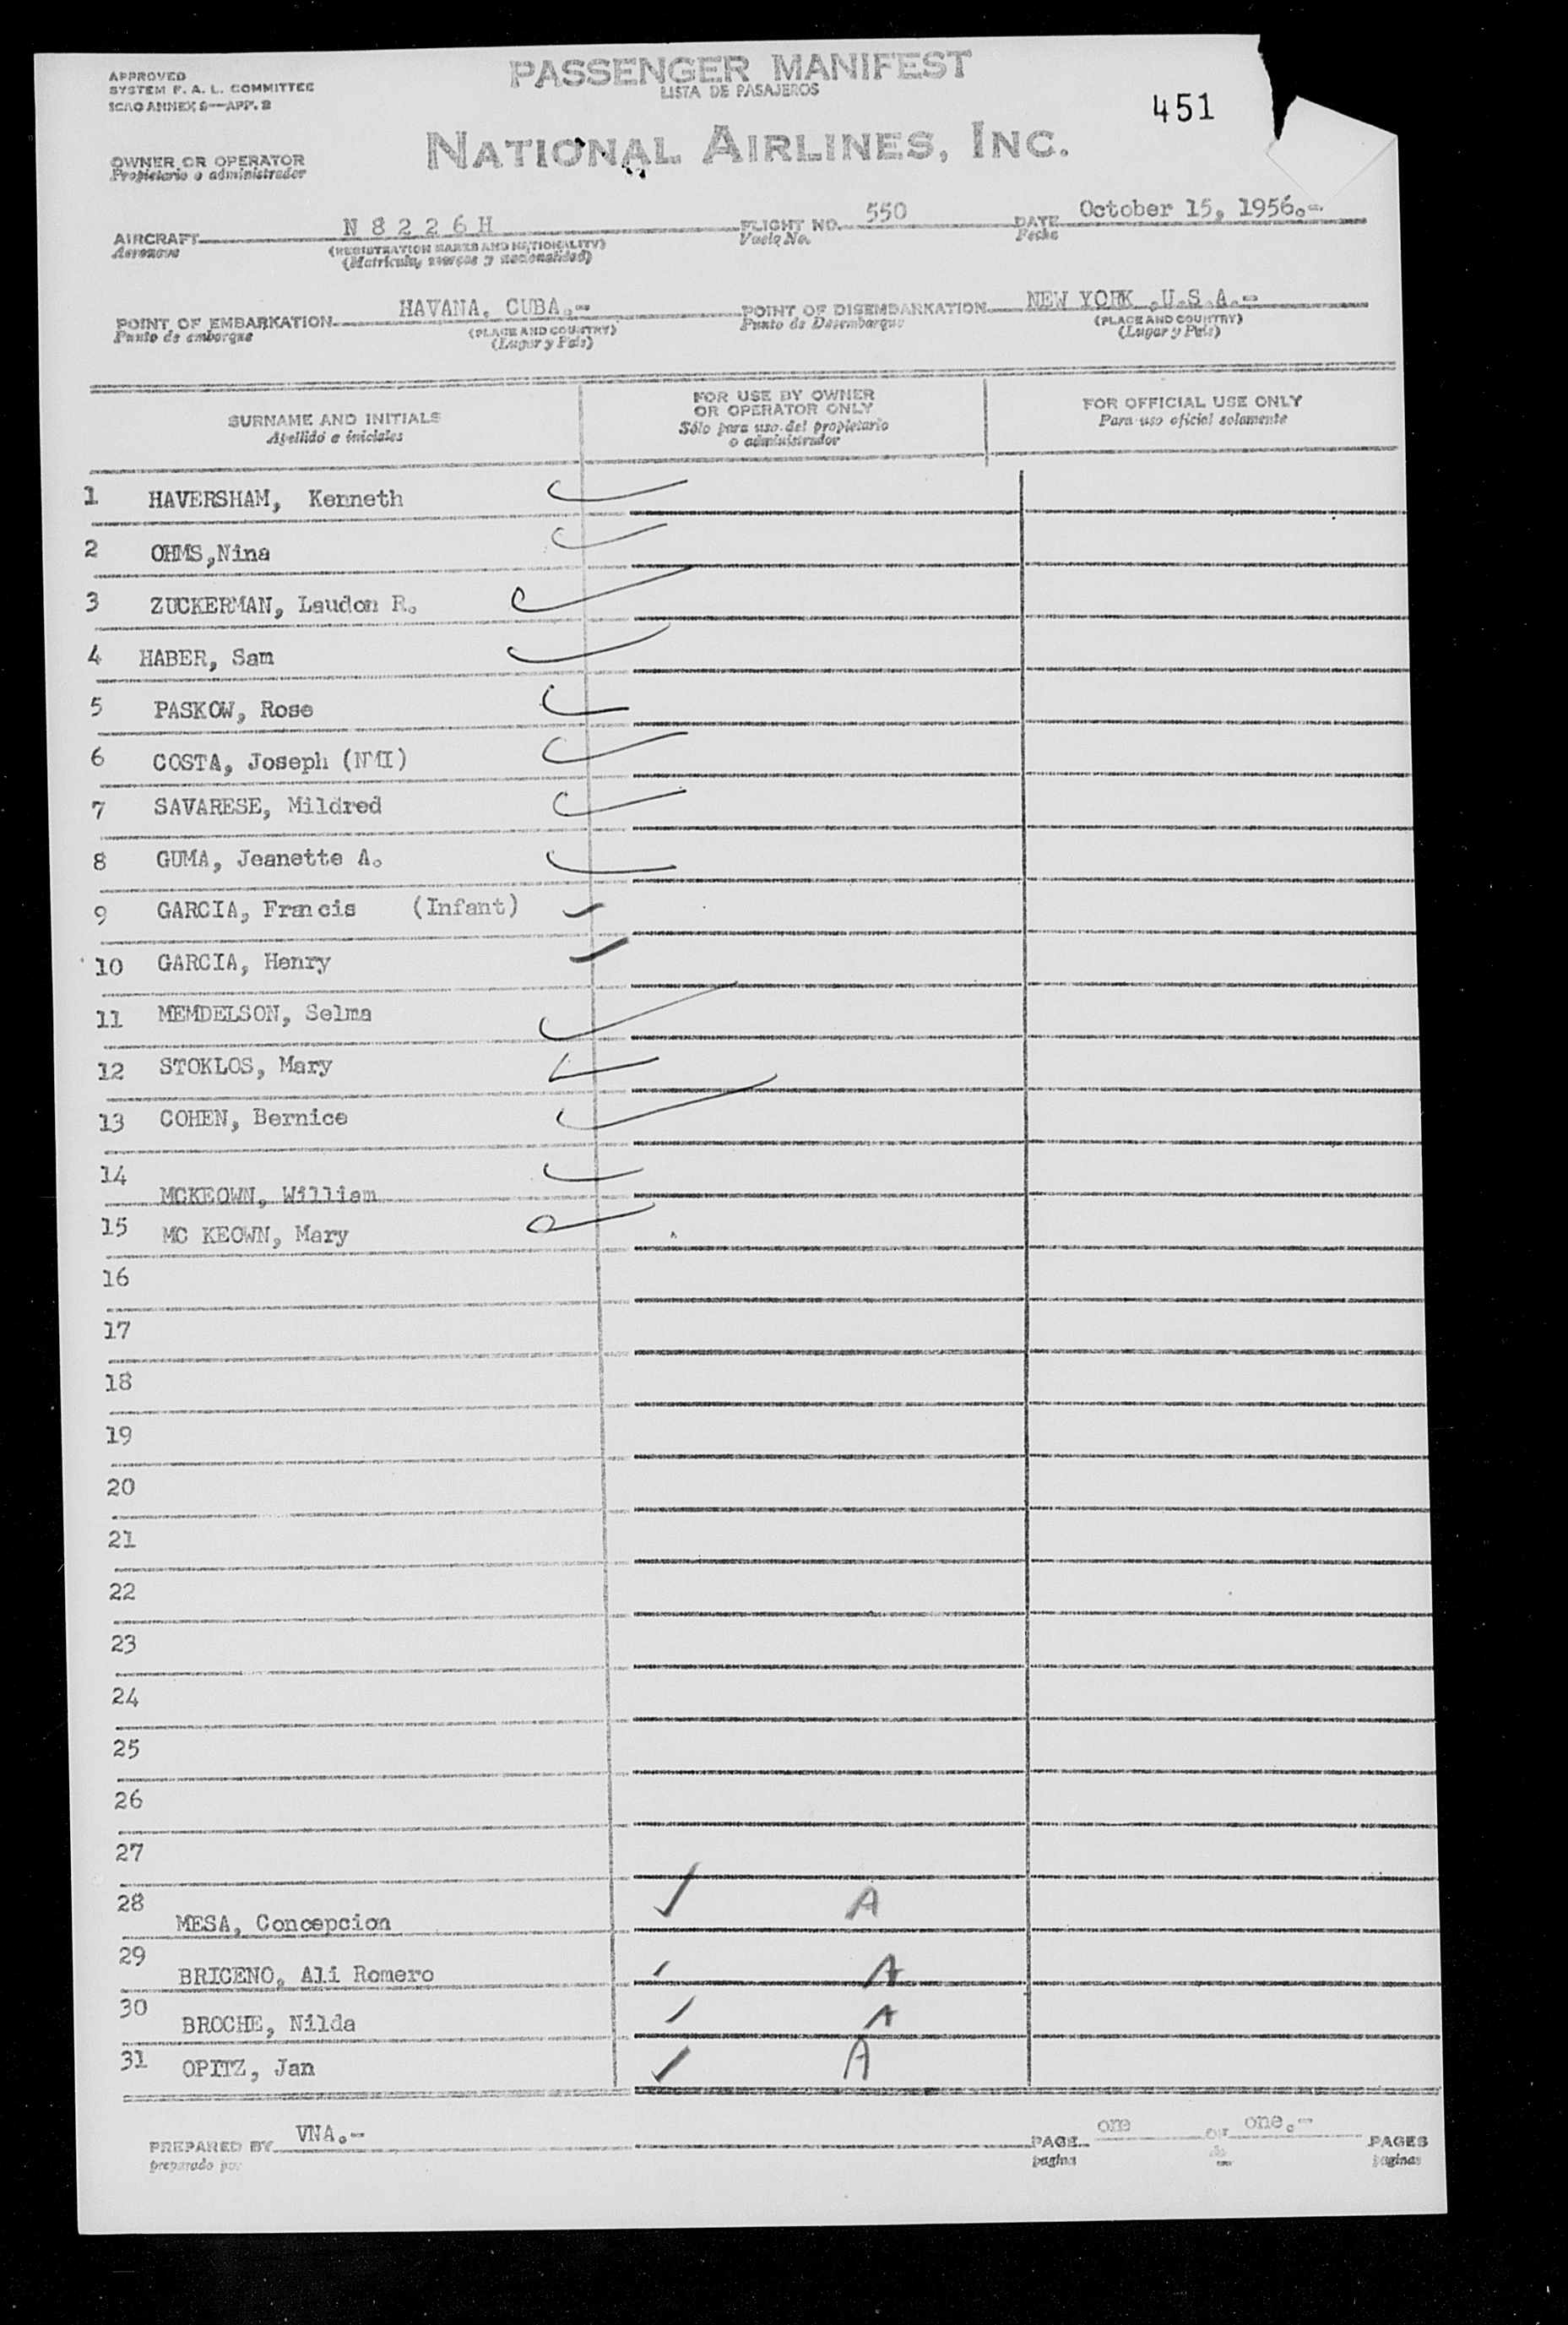 APPROVED
SYSTEM F. A. L. COMMITTEE
ICAO ANNEX 9—APP. 2
PASSENGER MANIFEST
LISTA DE PASAJEROS
451
NATIONAL AIRLINES, INC.
OWNER OR OPERATOR
Propietario o administrador
AIRCRAFT N 8 2 2 6 H FLIGHT NO. 550 DATE October 15, 1956.-
Aeronave (REGISTRATION MARKS AND NATIONALITY) Vuelo No. Fecha
(Matricula, marcas y nacionalidad)
POINT OF EMBARKATION HAVANA, CUBA.- POINT OF DISEMBARKATION NEW YORK ,U.S.A.-
Punto de embarque (PLACE AND COUNTRY) Punto de Desembarque (PLACE AND COUNTRY)
(Lugar y País) (Lugar y País)
SURNAME AND INITIALS
Apellido e iniciales
FOR USE BY OWNER
OR OPERATOR ONLY
Sólo para uso del propietario
o administrador
FOR OFFICIAL USE ONLY
Para uso oficial solamente
1 HAVERSHAM, Kenneth
2 OHMS,Nina
3 ZUCKERMAN, Laudon R.
4 HABER, Sam
5 PASKOW, Rose
6 COSTA, Joseph (NMI)
7 SAVARESE, Mildred
8 GUMA, Jeanette A.
9 GARCIA, Francis (Infant)
10 GARCIA, Henry
11 MEMDELSON, Selma
12 STOKLOS, Mary
13 COHEN, Bernice
14 MCKEOWN, William
15 MC KEOWN, Mary
16
17
18
19
20
21
22
23
24
25
26
27
28 MESA, Concepcion ✓ A
29 BRICENO, Ali Romero A
30 BROCHE, Nilda A
31 OPITZ, Jan ✓ A
PREPARED BY VNA.- PAGE one OF one.- PAGES
preparado por pagina de paginas